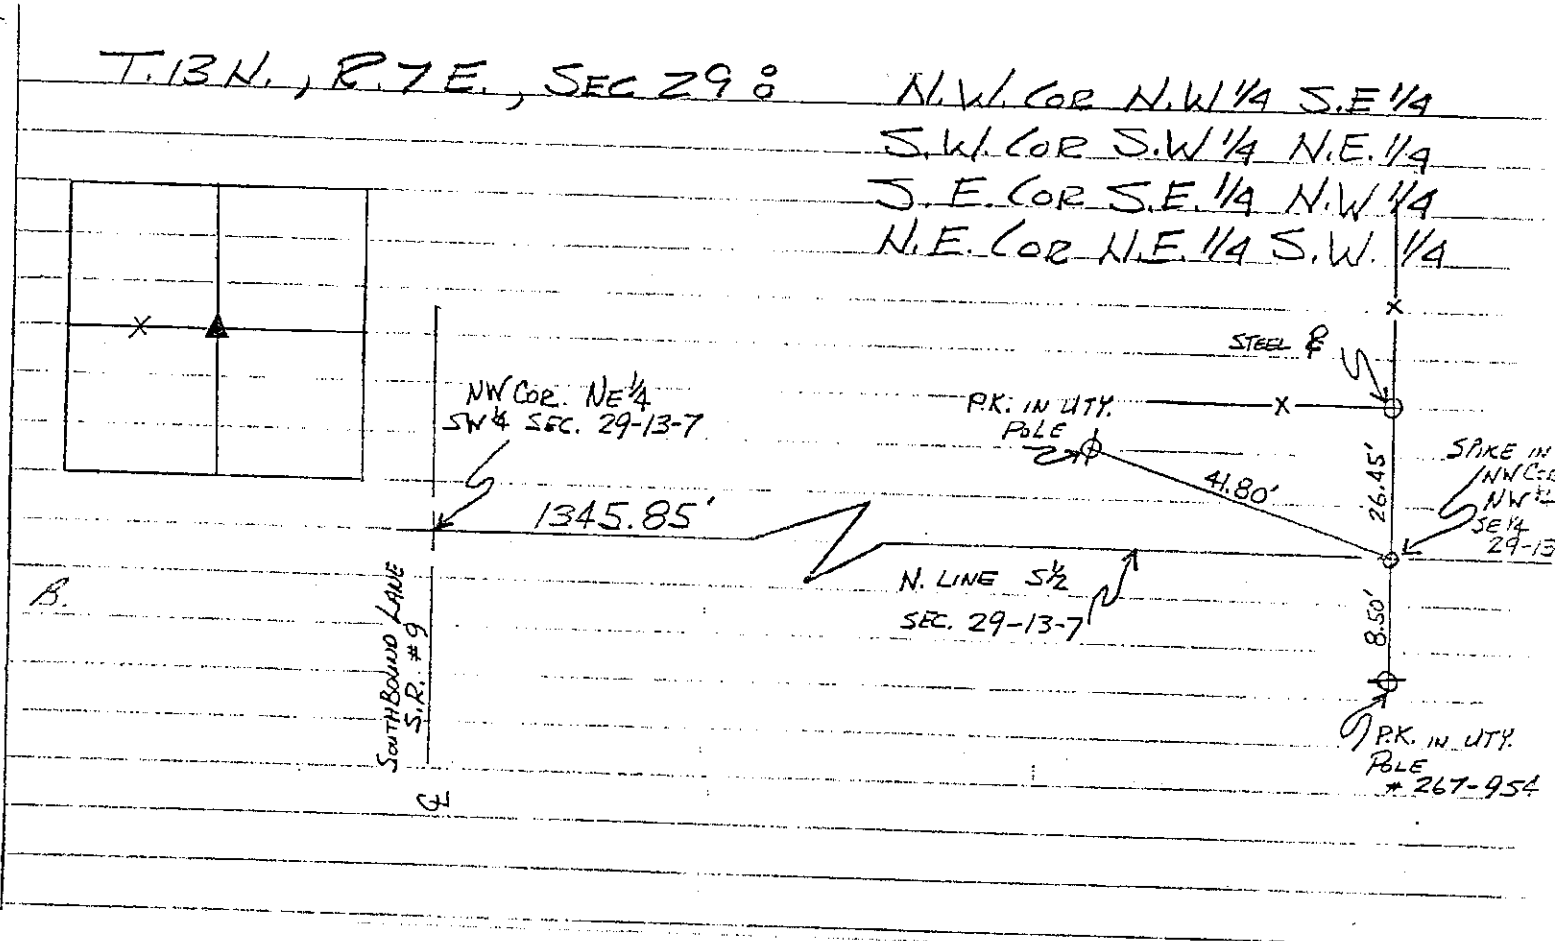 T.13 N., R.7 E., SEC 29 :
N.W. COR N.W 1/4 S.E 1/4
S.W. COR S.W 1/4 N.E. 1/4
S.E. COR S.E. 1/4 N.W 1/4
N.E. COR N.E. 1/4 S.W. 1/4
X
X
STEEL
NW COR. NE 1/4
SW 1/4 SEC. 29-13-7
P.K. IN UTY.
POLE
X
41.80'
26.45'
SPIKE IN
NW COR
NW 1/4
SE 1/4
29-13
1345.85'
N. LINE S 1/2
SEC. 29-13-7
B.
SOUTHBOUND LANE
S.R. #9
8.50'
P.K. IN UTY.
POLE
# 267-954
℄